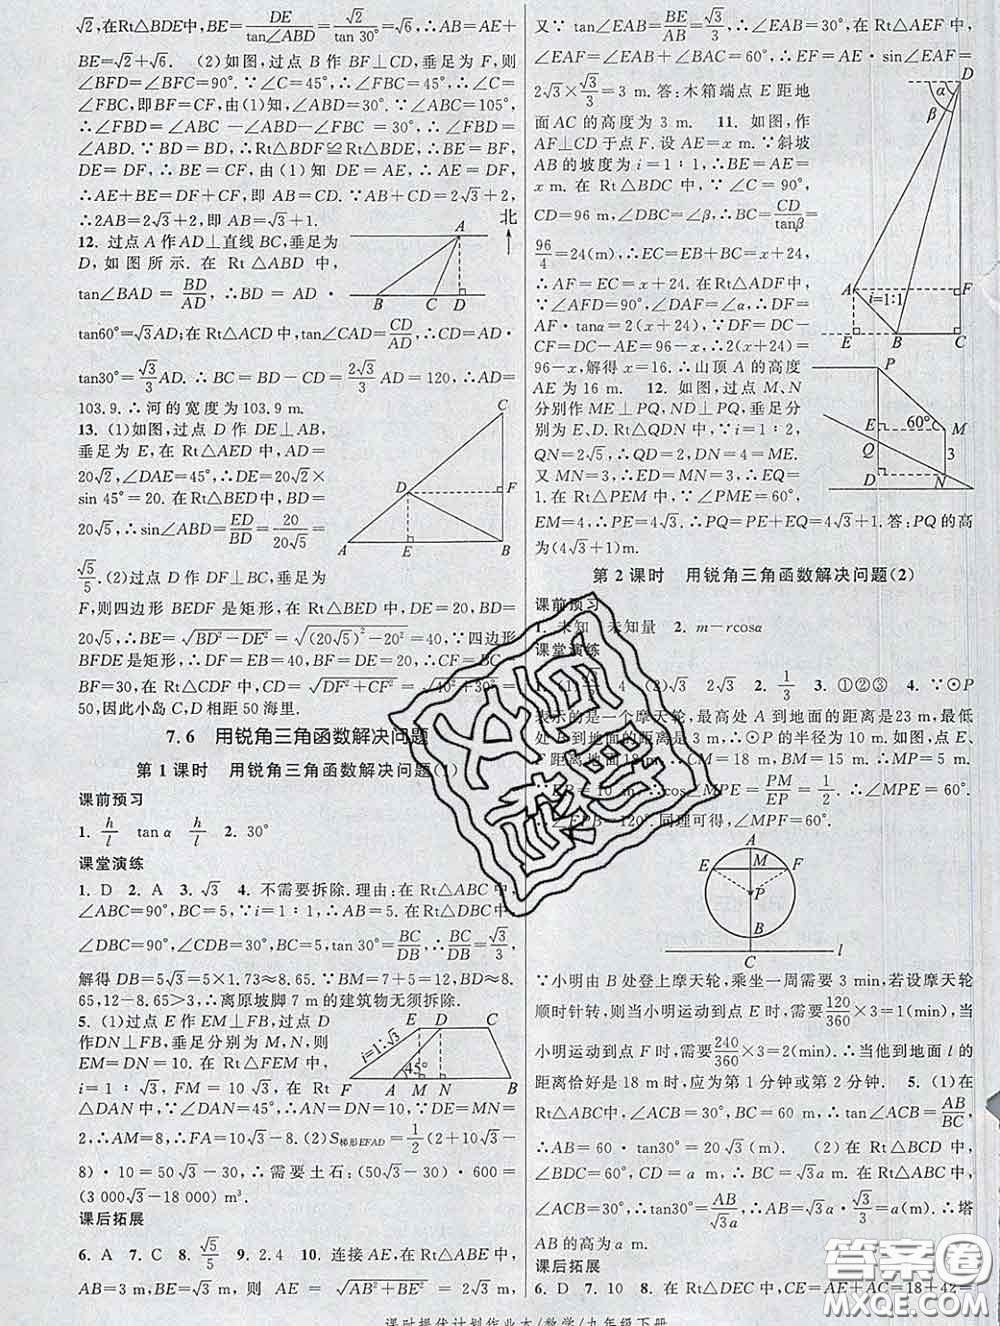 √2,在Rt△BDE中,BE=DE/tan∠ABD=√2/tan 30°=√6,∴AB=AE+
BE=√2+√6. (2)如图,过点 B 作 BF⊥CD,垂足为 F,则
∠BFD=∠BFC=90°. ∵∠C=45°,∴∠FBC=45°,∴∠FBC=
∠BFC,即BF=CF,由(1)知,∠ABD=30°. ∵∠ABC=105°,
∴∠FBD=∠ABC-∠ABD-∠FBC=30°,∴∠FBD=
∠ABD. ∵BD=BD,∴Rt△BDF≌Rt△BDE,∴BE=BF,
DE=DF,∴BE=CF,由(1)知 DE=AE,∴AE=DF,
∴AE+BE=DF+CF,即 AB=CD. ∵AB+CD=2√3+2,
∴2AB=2√3+2,即 AB=√3+1.
12. 过点 A 作 AD⊥直线 BC,垂足为
D,如图所示. 在 Rt△ABD 中,
tan∠BAD=BD/AD, ∴BD=AD·
tan60°=√3AD;在Rt△ACD中,tan∠CAD=CD/AD,∴CD=AD·
tan30°=√3/3AD. ∴BC=BD-CD=2√3/3AD=120,∴AD=
103.9. ∴河的宽度为103.9 m.
13. (1)如图,过点 D 作 DE⊥AB,
垂足为 E,在Rt△AED 中,AD=
20√2,∠DAE=45°,∴DE=20√2×
sin 45°=20. 在Rt△BED中,BD=
20√5,∴sin∠ABD=ED/BD=20/20√5=
√5/5. (2)过点 D 作 DF⊥BC,垂足为
F,则四边形 BEDF 是矩形,在Rt△BED 中,DE=20,BD=
20√5,∴BE=√(BD²-DE²)=√((20√5)²-20²)=40, ∵四边形
BFDE是矩形,∴DF=EB=40,BF=DE=20,∴CF=BC-
BF=30,在Rt△CDF中,CD=√(DF²+CF²)=√(40²+30²)=
50,因此小岛 C,D 相距 50 海里.
7.6 用锐角三角函数解决问题
第 1 课时 用锐角三角函数解决问题(1)
课前预习
1. h/l tan α h/l 2. 30°
课堂演练
1. D 2. A 3. √3 4. 不需要拆除. 理由:在Rt△ABC中,
∠ABC=90°,BC=5,∵i=1∶1,∴AB=5. 在Rt△DBC中,
∠DBC=90°,∠CDB=30°,∵BC=5,tan 30°=BC/DB,∴5/DB=√3/3,
解得 DB=5√3=5×1.73≈8.65. ∵BM=7+5=12,BD≈8.
65,12-8.65>3,∴离原坡脚 7 m的建筑物无须拆除.
5. (1)过点 E 作 EM⊥FB,过点 D
作DN⊥FB,垂足分别为M,N,则
EM=DN=10. 在Rt△FEM 中,
i=1∶√3,FM=10√3,在Rt
△DAN中,∵∠DAN=45°,∴AN=DN=10,∵DE=MN=
2,∴AM=8,∴FA=10√3-8. (2)S梯形EFAD=1/2(2+10√3-
8)·10=50√3-30. ∴需要土石:(50√3-30)·600=
(3 000√3-18 000) m³.
课后拓展
6. A 7. C 8. √5/5 9. 2.4 10. 连接 AE,在Rt△ABE 中,
AB=3 m,BE=√3 m,则 AE=√(AB²+BE²)=2√3 m,
又∵tan∠EAB=BE/AB=√3/3,∴∠EAB=30°. 在Rt△AEF中,
∠EAF=∠EAB+∠BAC=60°,∴EF=AE·sin∠EAF=
2√3×√3/2=3 m. 答:木箱端点 E 距地
面 AC 的高度为 3 m. 11. 如图,作
AF⊥CD 于点 F. 设 AE=x m. ∵斜坡
AB 的坡度为 i=1∶1,∴BE=AE=
x m. 在 Rt△BDC 中,∵∠C=90°,
CD=96 m,∠DBC=∠β,∴BC=CD/tanβ=
96/4=24(m),∴EC=EB+BC=x+24.
∴AF=EC=x+24. 在 Rt△ADF 中,
∵∠AFD=90°,∠DAF=∠α,∴DF=
AF·tanα=2(x+24). ∵DF=DC-
CF=DC-AE=96-x,∴2(x+24)=
96-x,解得 x=16. ∴山顶 A 的高度
AE 为 16 m. 12. 如图,过点 M,N
分别作 ME⊥PQ,ND⊥PQ,垂足分
别为 E、D. 在Rt△QDN 中,∵i=1∶2,
QN=2√5=5,∴QD=2,DN=4.
又∵MN=3,∴DE=MN=3,∴EQ=
1. 在Rt△PEM 中,∵∠PME=60°,
EM=4,∴PE=4√3,∴PQ=PE+EQ=4√3+1. 答:PQ 的高
为(4√3+1)m.
第 2 课时 用锐角三角函数解决问题(2)
课前预习
1. 未知 未知量 2. m-rcosα
课堂演练
4 (2)√3 2√3 2. 1/3 3. ①②③ 4. ∵⊙P
表示的是一个摩天轮,最高处 A 到地面的距离是23 m,最低
处 B 到地面 的距离是 3 m,∴⊙P 的半径为 10 m. 如图,点
CM=18 m,BM=15 m. ∴PM=5 m.
∵EP=10 m,∴cos∠MPE=PM/EP=1/2. ∴∠MPE=60°.
∴∠EPB=120°. 同理可得,∠MPF=60°.
∵小明由 B 处登上摩天轮,乘坐一周需要 3 min,若设摩天轮
顺时针转,则当小明运动到点 E 时,需要120/360×3=1(min),当
小明运动到点 F 时,需要240/360×3=2(min). ∴当他到地面 l 的
距离恰好是 18 m时,应为第 1 分钟或第 2 分钟. 5. (1)在
Rt△ABC中,∠ACB=30°,BC=60 m,∴tan∠ACB=AB/BC,
∴AB=60·tan30°=20√3(m). (2)在Rt△BCD 中,
∠BDC=60°,CD=a m,∴BC=√3a m. 在Rt△ABC 中,
∠ACB=30°,∴tan30°=AB/√3a,∴AB=√3a·√3/3=a(m). ∴塔
AB 的高为 a m.
课后拓展
6. D 7. 10 8. 在Rt△DEC 中,CE=AE+AC=18+42=
课时提优计划作业本/数学/九年级下册
北 A B C D
A B C D E F
i=1∶√3 45° F A M N B E D C
α β D A i=1∶1 F E B C
P E Q D 60° M 3 N
A E M F P B C l
答案圈
MXQE.COM